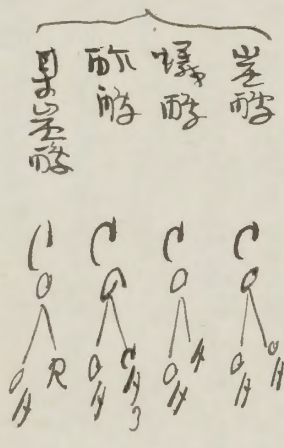 炭酸
蟻酸
酢酸
炭酸
CO
OH OH
CO
OH H
CO
OH CH3
CO
OH R